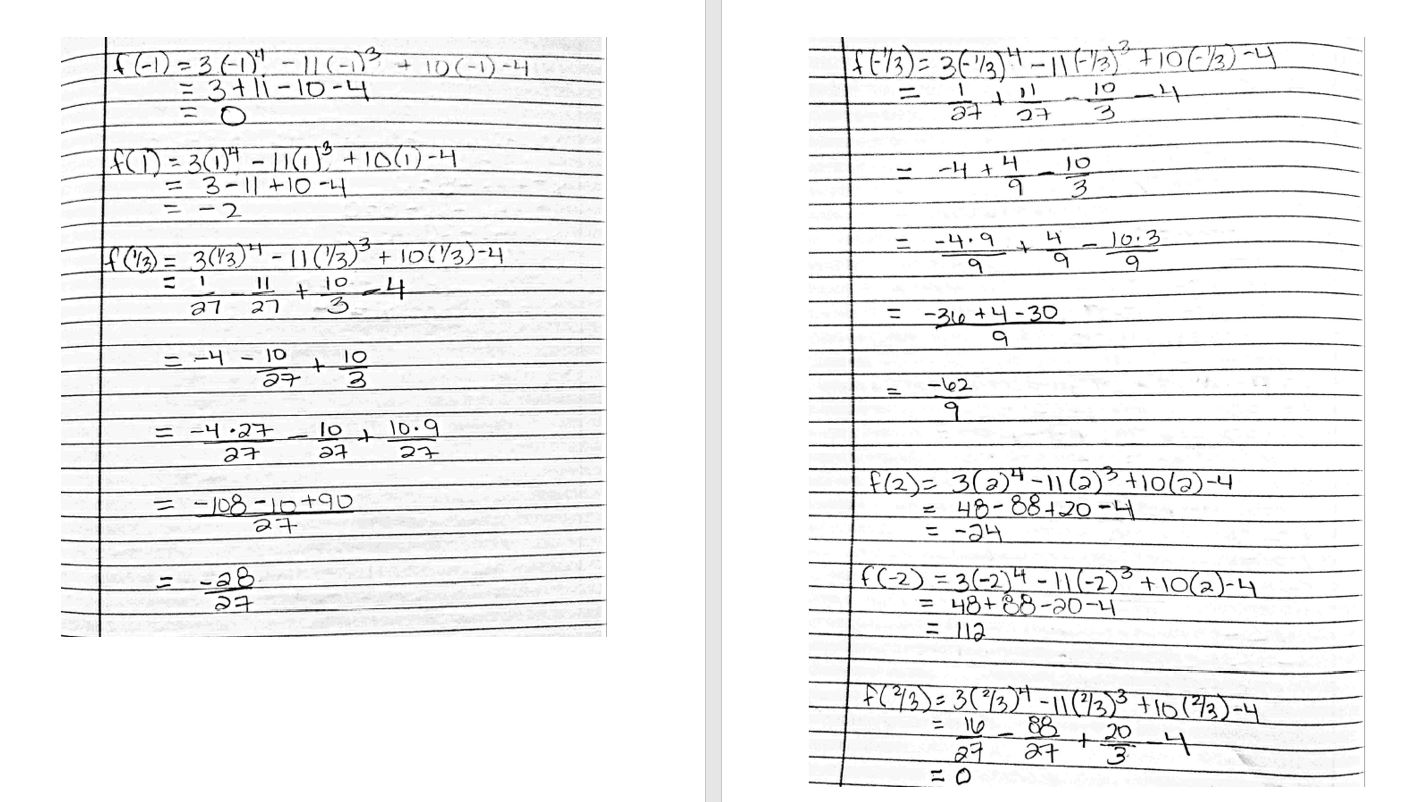 f(-1) = 3(-1)^4 - 11(-1)^3 + 10(-1) - 4
= 3 + 11 - 10 - 4
= 0
f(1) = 3(1)^4 - 11(1)^3 + 10(1) - 4
= 3 - 11 + 10 - 4
= -2
f(1/3) = 3(1/3)^4 - 11(1/3)^3 + 10(1/3) - 4
= 1/27 - 11/27 + 10/3 - 4
= -4 - 10/27 + 10/3
= -4·27/27 - 10/27 + 10·9/27
= -108 - 10 + 90/27
= -28/27
f(-1/3) = 3(-1/3)^4 - 11(-1/3)^3 + 10(-1/3) - 4
= 1/27 + 11/27 - 10/3 - 4
= -4 + 4/9 - 10/3
= -4·9/9 + 4/9 - 10·3/9
= -36 + 4 - 30/9
= -62/9
f(2) = 3(2)^4 - 11(2)^3 + 10(2) - 4
= 48 - 88 + 20 - 4
= -24
f(-2) = 3(-2)^4 - 11(-2)^3 + 10(2) - 4
= 48 + 88 - 20 - 4
= 112
f(2/3) = 3(2/3)^4 - 11(2/3)^3 + 10(2/3) - 4
= 16/27 - 88/27 + 20/3 - 4
= 0